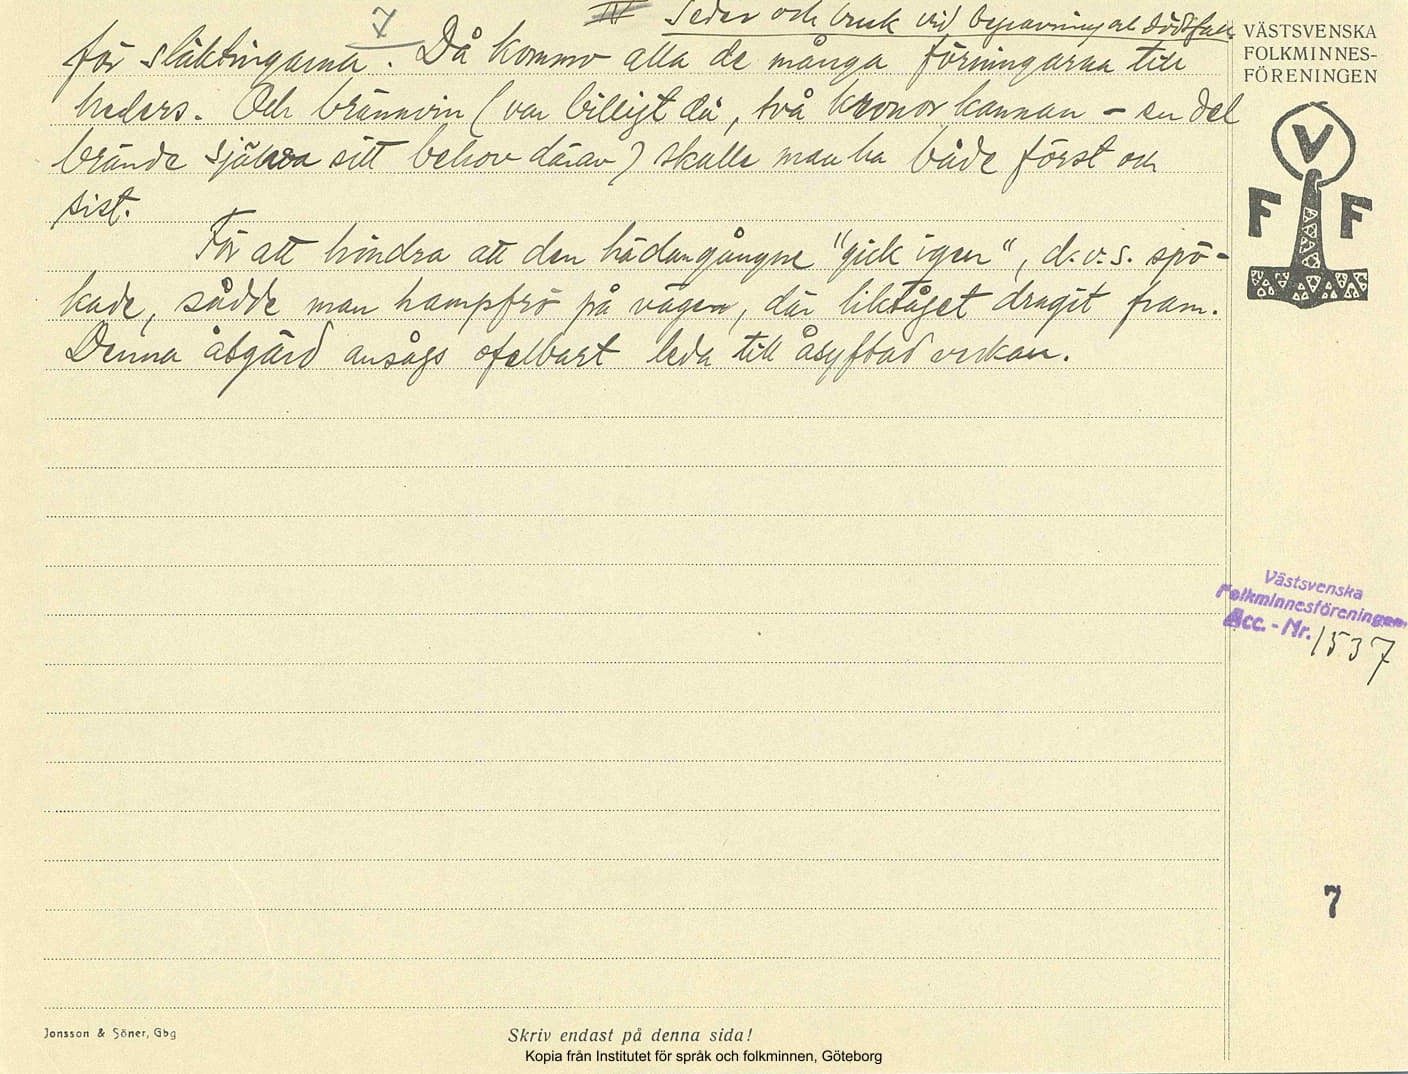 7
IV Seder och bruk vid begravning al. dödsfall
för släktingarna. Då kommo alla de många förningarna till
heders. Och brännvin (var billigt då, två kronor kannan – en del
brände själva sitt behov därav) skulle man ha både först och
sist.
För att hindra att den hädangångne "gick igen", d.v.s. spö-
kade, sådde man hampfrö på vägen, där liktåget dragit fram.
Denna åtgärd ansågs ofelbart leda till åsyftad verkan.
VÄSTSVENSKA
FOLKMINNES-
FÖRENINGEN
V
F F
Västsvenska
Folkminnesföreningen
Acc. - Nr. 1537
7
Jonsson & Söner, Gbg
Skriv endast på denna sida!
Kopia från Institutet för språk och folkminnen, Göteborg